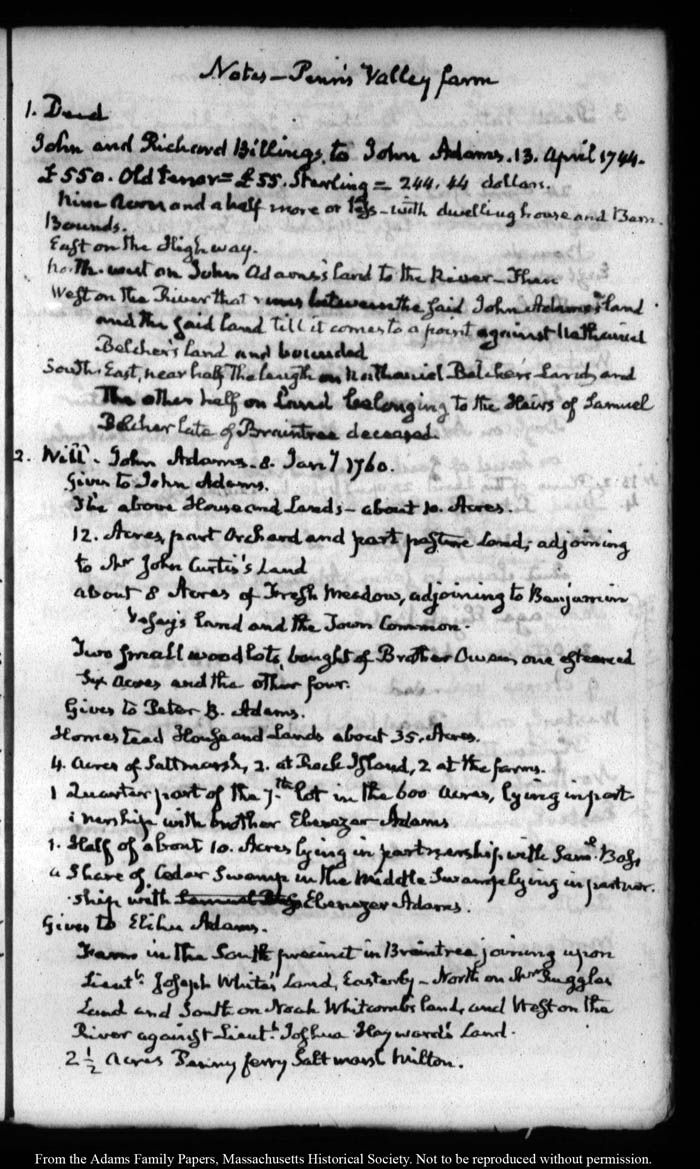 Notes – Penn's Valley farm
1. Deed
John and Richard Billings, to John Adams. 13. April 1744.
£550. Old Tenor = £55. Sterling = 244.44 dollars.
Nine Acres and a half more or less – with dwelling house and Barn.
Bounds.
East on the High way.
North-west on John Adams's land to the River – Then
West on the River that runs between the said John Adams's land
and the said land till it comes to a point against Nathaniel
Belcher's land and bounded
South-East, near half the length on Nathaniel Belcher's Land, and
The other half on Land belonging to the Heirs of Samuel
Belcher late of Braintree deceased.
2. Will. John Adams. 8. Jany 1760.
Gives to John Adams.
The above House and Lands – about 10. Acres.
12. Acres, part Orchard and part pasture Land; adjoining
to Mr John Curtis's Land
about 8 Acres of Fresh Meadow, adjoining to Benjamin
Vesey's land and the Town Common.
Two small wood lots, bought of Brother Owen, one esteemed
six acres and the other four.
Gives to Peter B. Adams.
Homestead House and Lands about 35. Acres.
4. acres of Saltmarsh, 2. at Rock Island, 2 at the farms.
1 Quarter part of the 7.th lot in the 600 acres, lying in part-
inership with brother Ebenezar Adams
1. Half of about 10. Acres lying in partnership with Saml. Bass
a Share of Cedar Swamp in the Middle Swamp lying in partner-
ship with Samuel Bass Ebenezer Adams.
Gives to Elihu Adams.
Farm in the South precinct in Braintree joining upon
Lieutt. Joseph White's Land, Easterly – North on Mr Ruggles
Land and South on Noah Whitcomb's land, and West on the
River against Lieutt. Joshua Hayward's Land.
2 1/2 acres Penny ferry Salt marsh Milton.
From the Adams Family Papers, Massachusetts Historical Society. Not to be reproduced without permission.